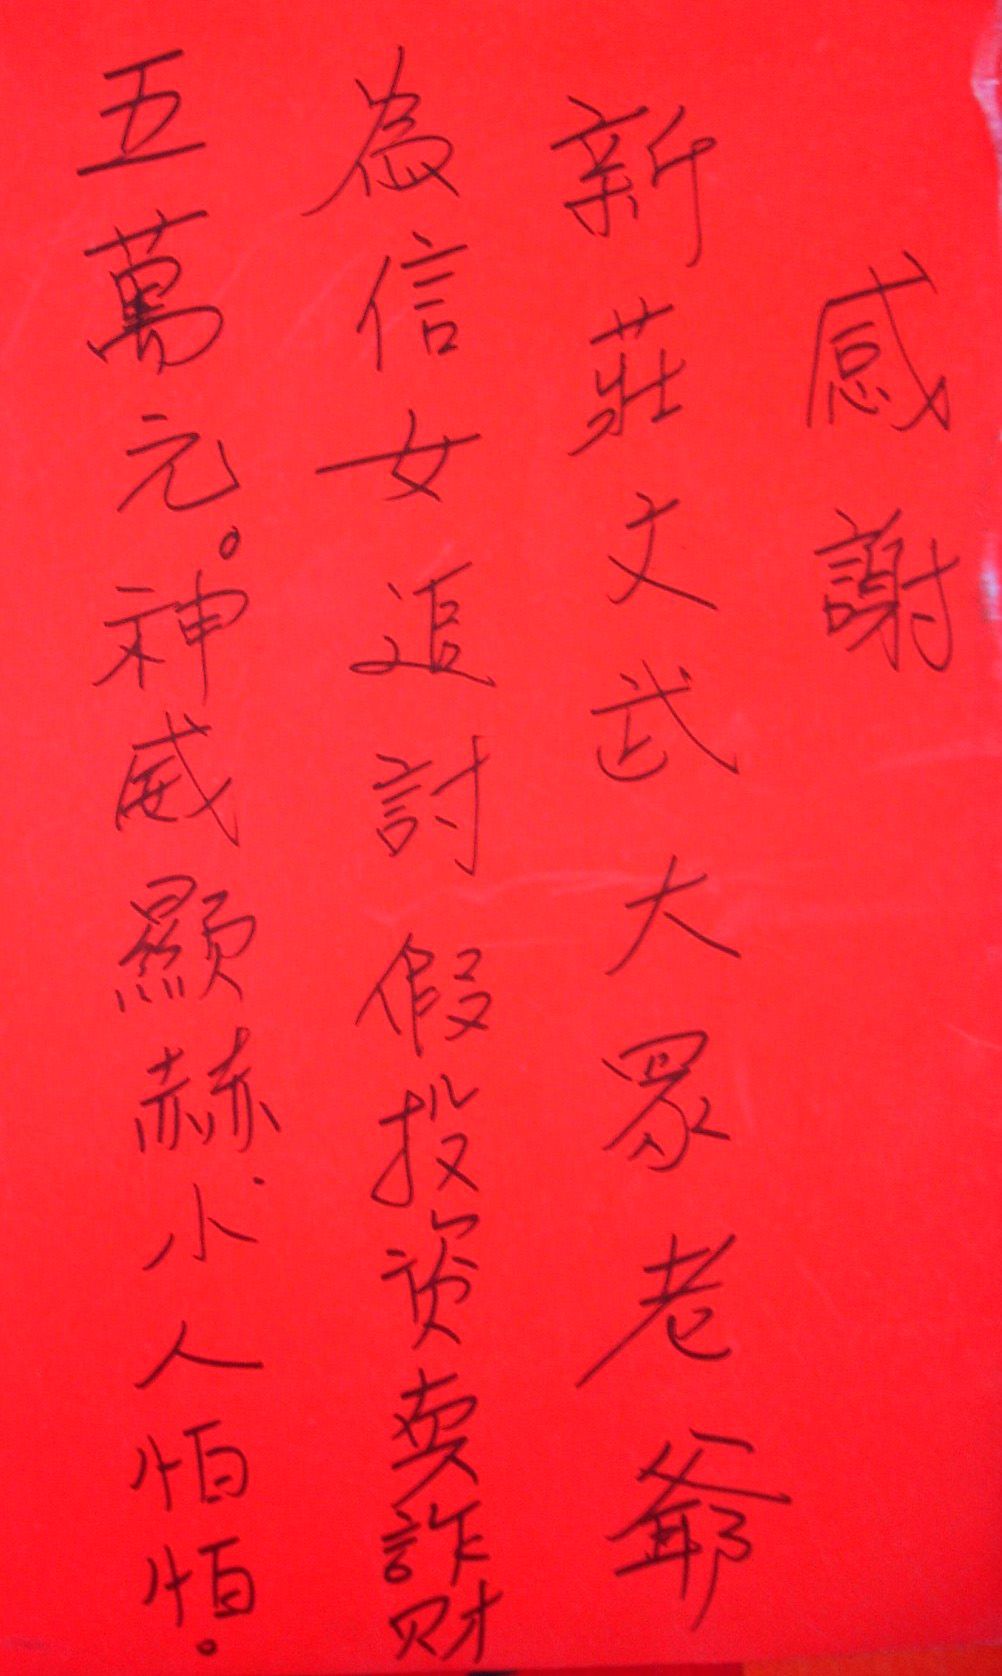 感謝
新莊文武大眾老爺
為信女追討假投資卖詐財
五萬元。神威顯赫小人怕怕。